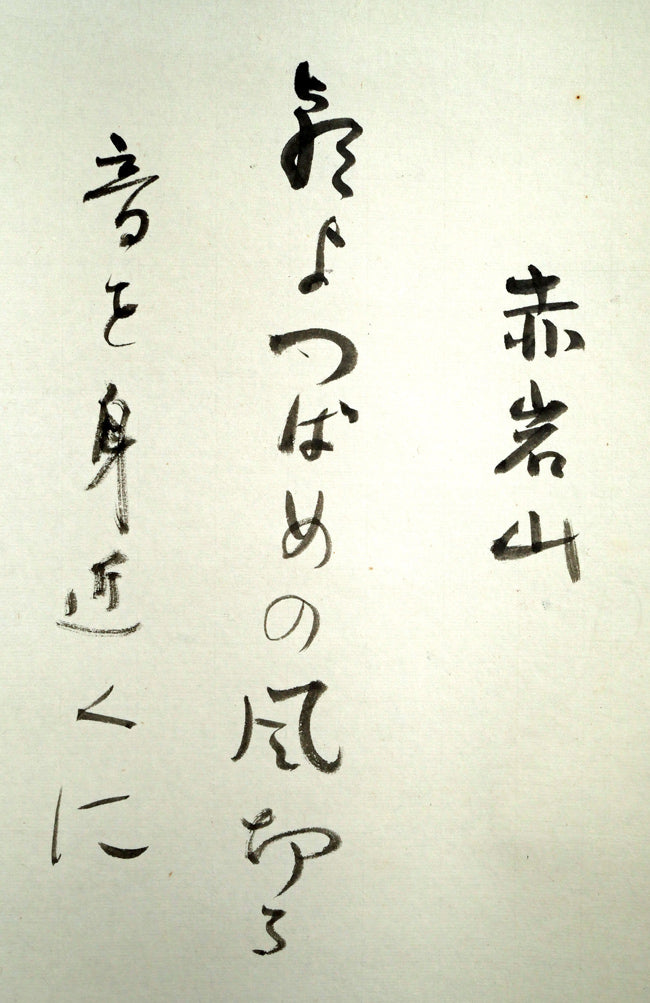 赤岩山
よつばめの風切る
音を身近くに